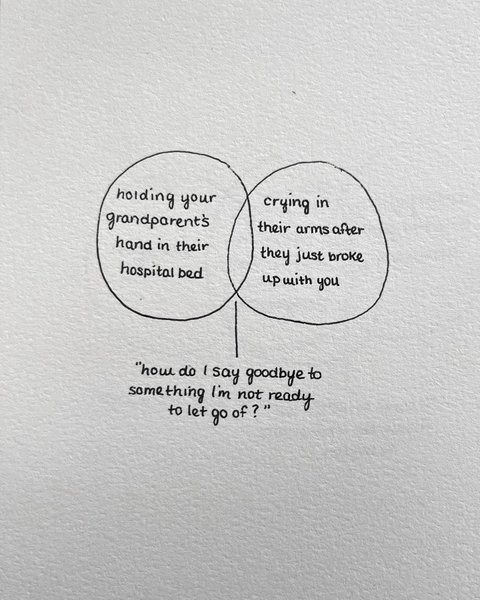 holding your
grandparent's
hand in their
hospital bed
crying in
their arms after
they just broke
up with you
"how do I say goodbye to
something I'm not ready
to let go of?"